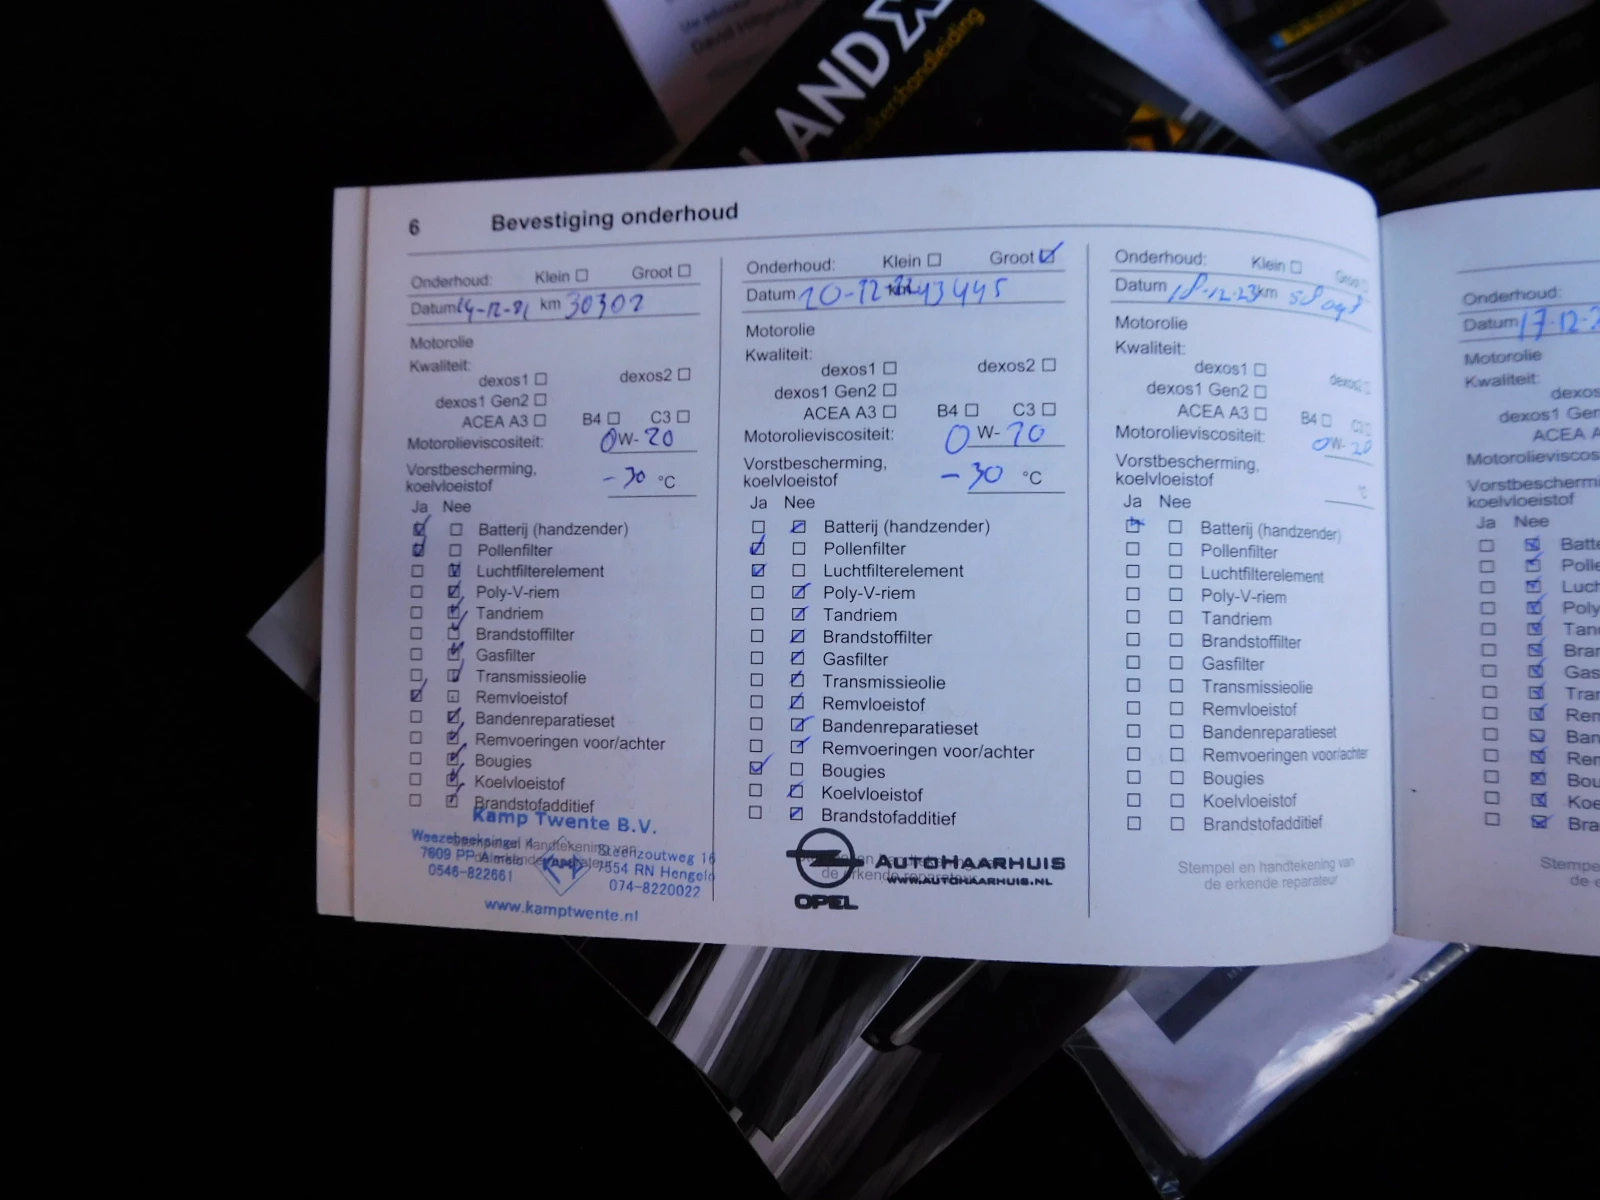 LAND X
6 Bevestiging onderhoud
Onderhoud: Klein Groot
Datum 14-12-21 km 30302
Motorolie
Kwaliteit:
dexos1 dexos2
dexos1 Gen2
ACEA A3 B4 C3
Motorolieviscositeit: 0W-20
Vorstbescherming,
koelvloeistof -30 °C
Ja Nee
Batterij (handzender)
Pollenfilter
Luchtfilterelement
Poly-V-riem
Tandriem
Brandstoffilter
Gasfilter
Transmissieolie
Remvloeistof
Bandenreparatieset
Remvoeringen voor/achter
Bougies
Koelvloeistof
Brandstofadditief
Kamp Twente B.V.
Steenzoutweg 16
7609 PP Almelo 7554 RN Hengelo
0546-822661 KAMP 074-8220022
www.kamptwente.nl
Onderhoud: Klein Groot
Datum 20-12-22 km 43445
Motorolie
Kwaliteit:
dexos1 dexos2
dexos1 Gen2
ACEA A3 B4 C3
Motorolieviscositeit: 0W-20
Vorstbescherming,
koelvloeistof -30 °C
Ja Nee
Batterij (handzender)
Pollenfilter
Luchtfilterelement
Poly-V-riem
Tandriem
Brandstoffilter
Gasfilter
Transmissieolie
Remvloeistof
Bandenreparatieset
Remvoeringen voor/achter
Bougies
Koelvloeistof
Brandstofadditief
AUTOHAARHUIS
de erkende reparateur
WWW.AUTOHAARHUIS.NL
OPEL
Onderhoud: Klein Groot
Datum 18-12-23 km 58098
Motorolie
Kwaliteit:
dexos1 dexos2
dexos1 Gen2
ACEA A3 B4 C3
Motorolieviscositeit: 0W-20
Vorstbescherming,
koelvloeistof °C
Ja Nee
Batterij (handzender)
Pollenfilter
Luchtfilterelement
Poly-V-riem
Tandriem
Brandstoffilter
Gasfilter
Transmissieolie
Remvloeistof
Bandenreparatieset
Remvoeringen voor/achter
Bougies
Koelvloeistof
Brandstofadditief
Stempel en handtekening van
de erkende reparateur
Onderhoud:
Datum 17-12-2
Motorolie
Kwaliteit:
dexos
dexos1 Gen
ACEA A
Motorolieviscos
Vorstbescherm
koelvloeistof
Ja Nee
Batte
Polle
Luch
Poly
Tan
Bran
Gas
Tra
Rem
Ban
Rem
Bou
Koe
Bra
Stempe
de e